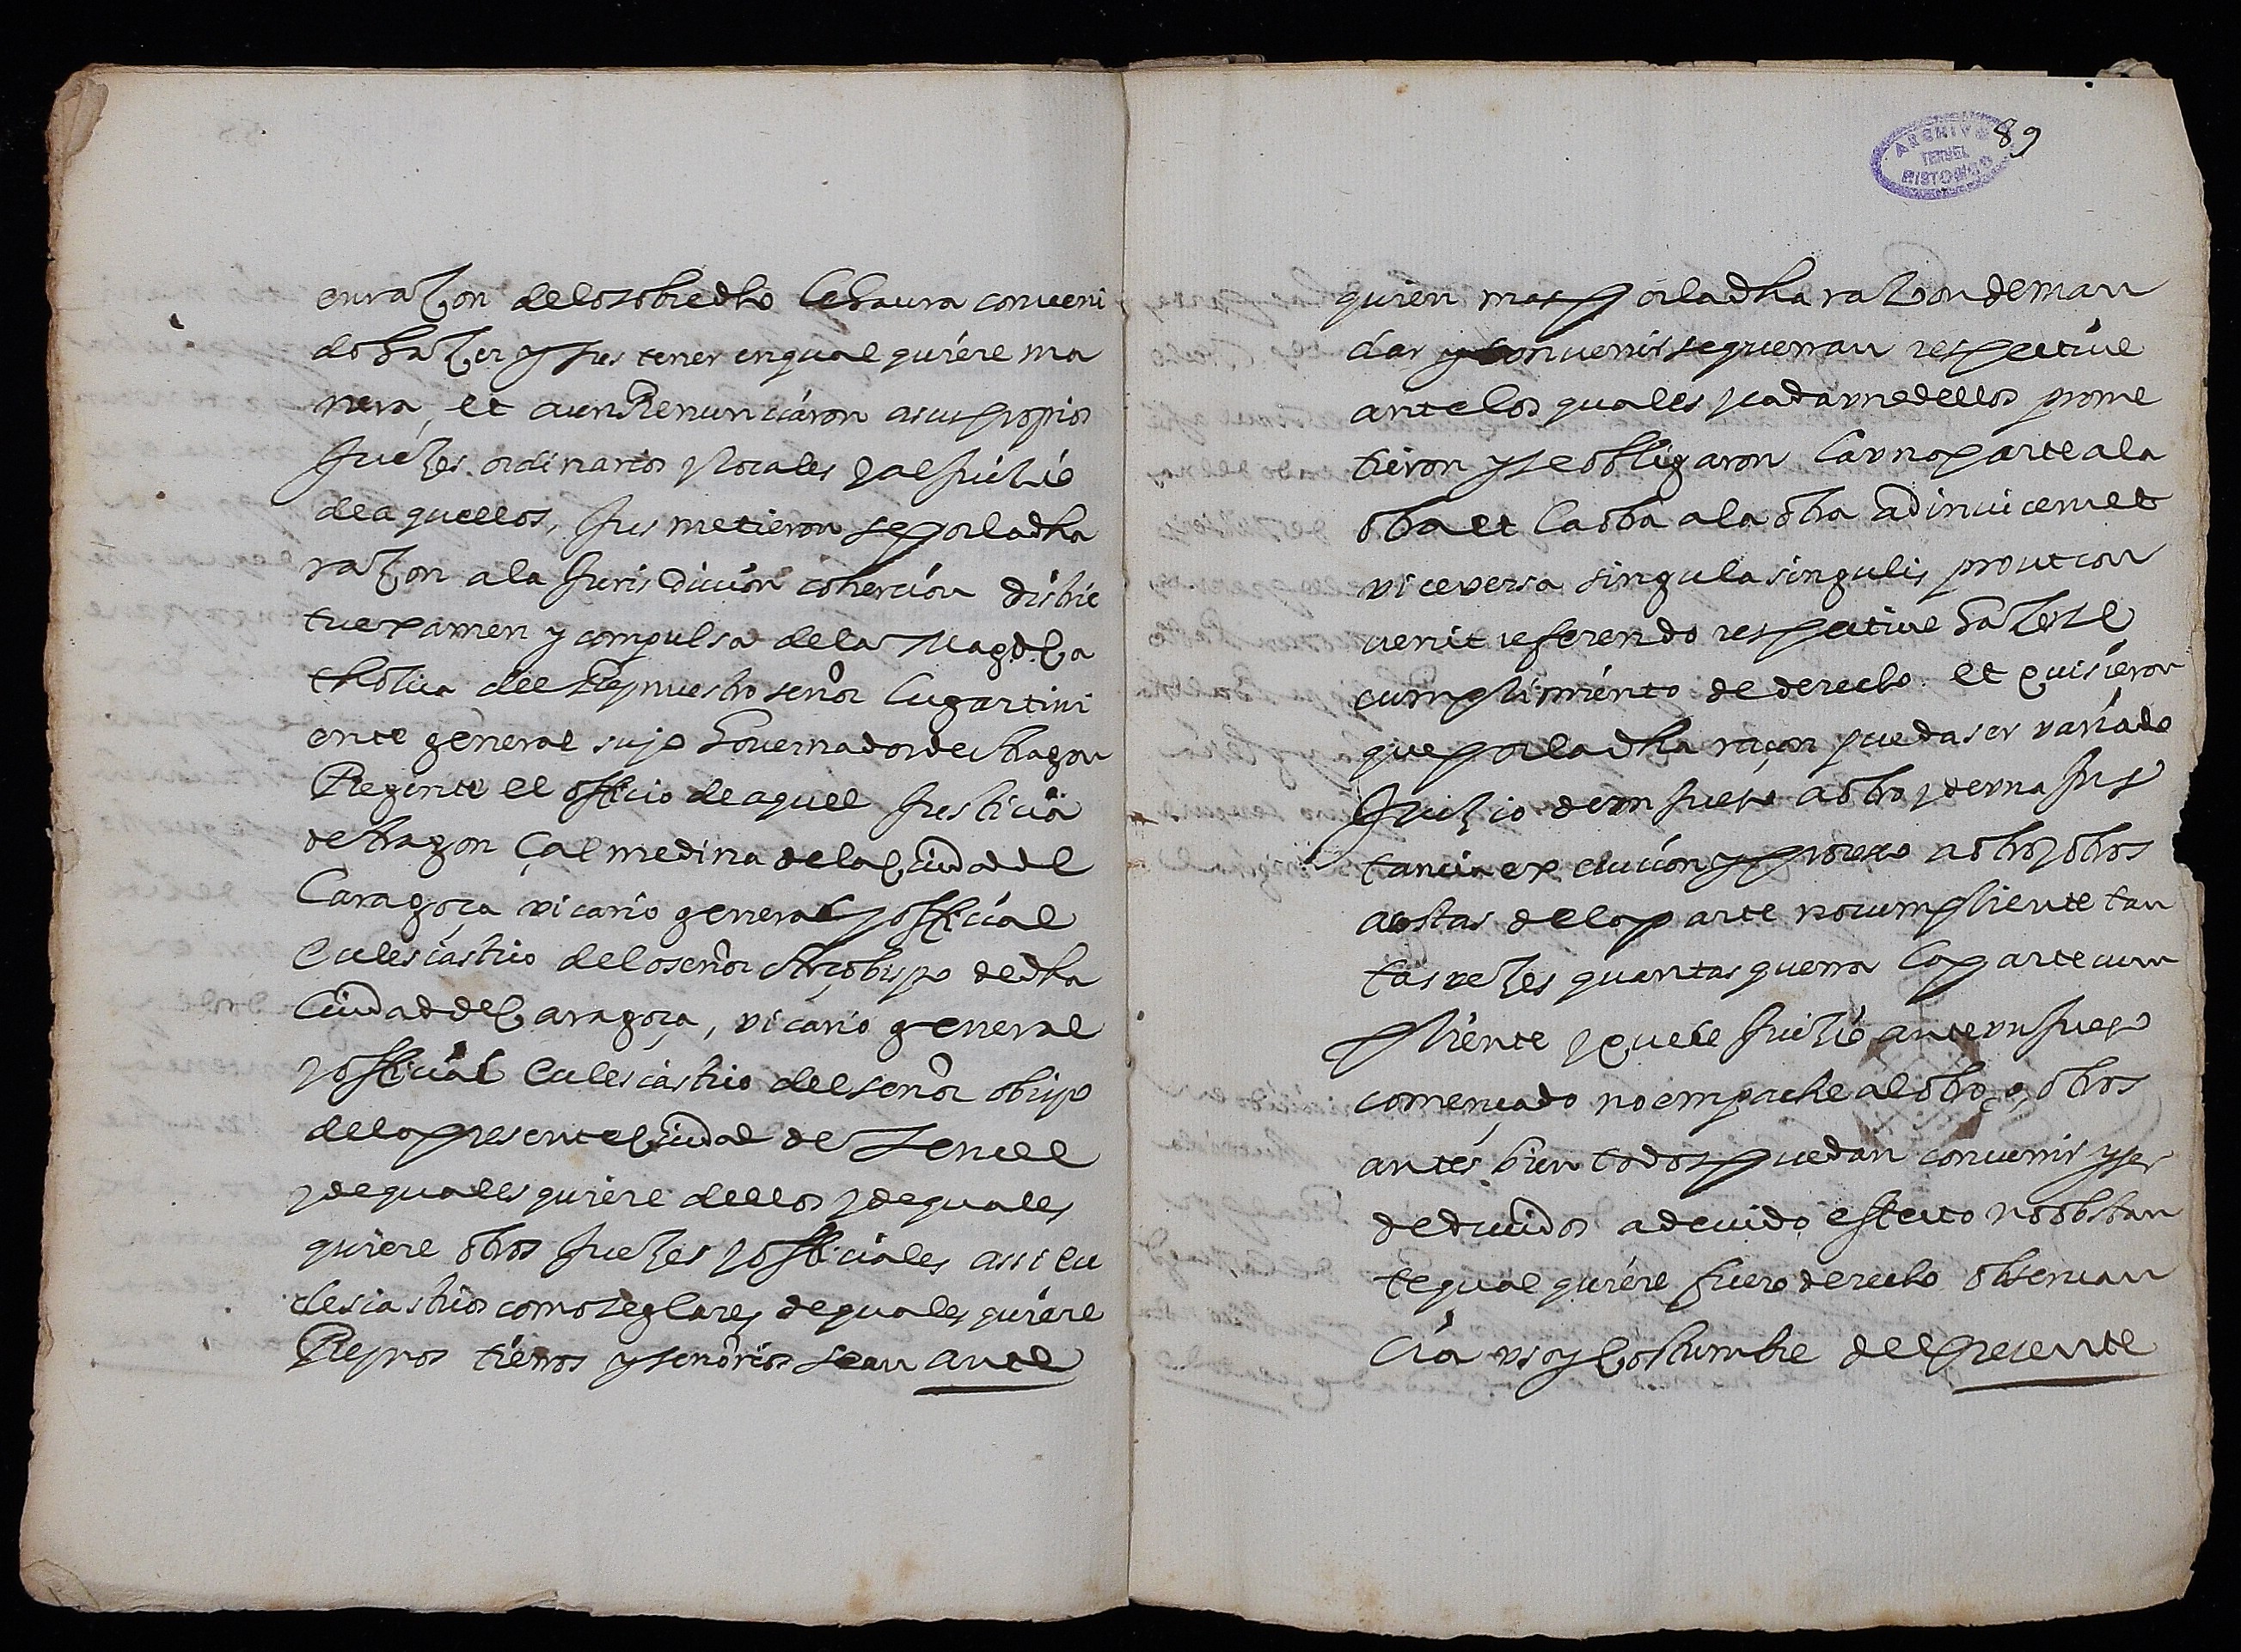 en razon de lo sobredho le haura conveni
do hazer y sus tener en qual quiere ma
nera, et aun Renunciaron a sus propios
Juezes ordinarios y locales y al Juizio
de aquellos, Jus metieron se por la dha
razon a la Jurisdiccion cohercion districe
tu examen y compulsa de la Magd. Ca
tholica del Rey nuestro señor Lugartini
ente general suyo Gouernador de Aragon
Regente el officio de aquel Justicia
de Aragon Çalmedina de la Ciudad de
Caragoça vicario general y official
Eclesiastico de lo señor Arçobispo de dha
Ciudad de Caragoça, vicario general
y official Eclesiastico del señor obispo
de la presente Ciudad de Teruel
y de quales quiere dellos y de quales
quiere otros Juezes y officiales assi ecc
lesiasticos como seglares de quales quiere
Reynos tierras y señorios sean ante
ARCHIVO
TERUEL
HISTORICO
89
quien mas por la dha razon deman
dar y convenir se querran respectiue
ante los quales y cada vno dellos prome
tieron y se obligaron la vna parte a la
otra et la otra a la otra ad inuicem et
vice versa singula singulis prout con
uenit referendo respectiue hazerse
cumplimiento de derecho et quisieron
que por la dha raçon pueda ser variado
Juizio de vn Juez a otro y de vna Jns
tancia execucion y proceso a otro y otros
a costas de la parte no cumpliente tan
tas vezes quantas querra la parte cum
pliente y que el Juizio ante vn Juez
començado no empache al otro o, otros
antes bien todos puedan convenir y ser
deduzidos a deuido effecto no obstan
te qual quiere fuero derecho obseruan
cia vso y Costumbre del presente